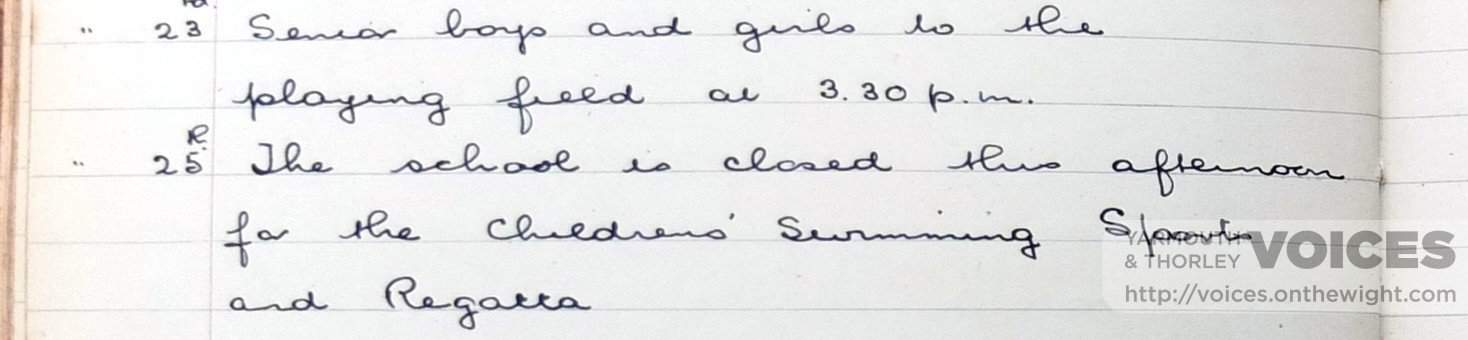 " 23rd Senior boys and girls to the
playing field at 3.30 p.m.
" 25th The school is closed this afternoon
for the Childrens' Swimming Sports
and Regatta
YARMOUTH & THORLEY VOICES
http://voices.onthewight.com